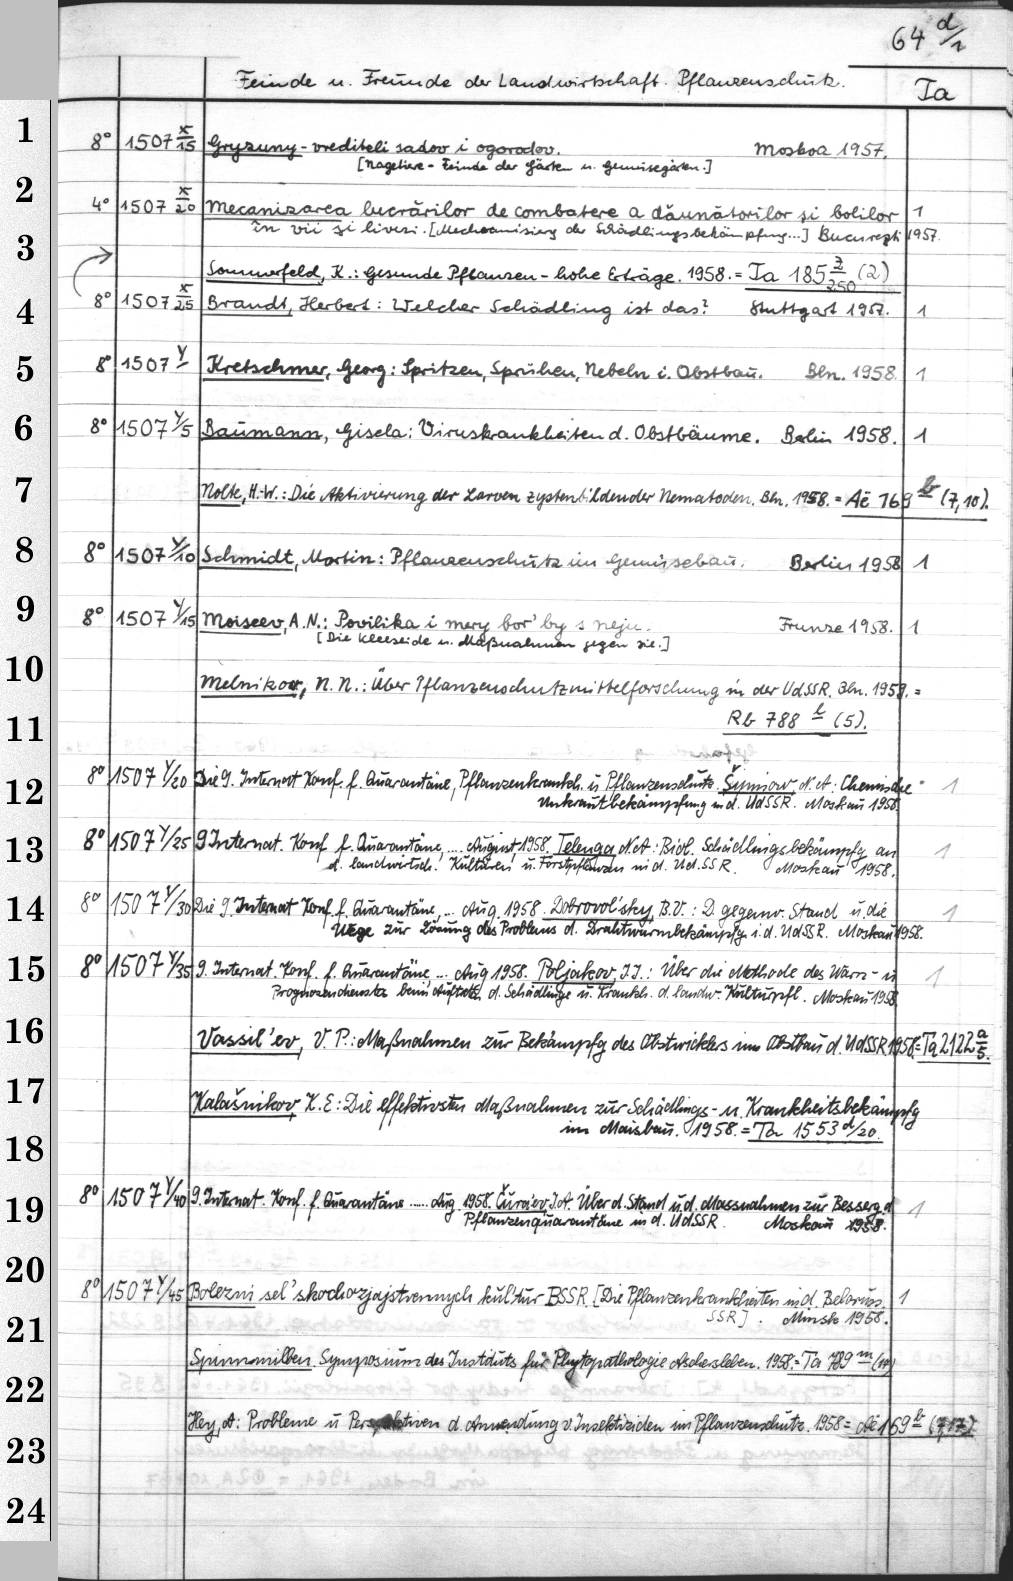 64 d/1
Feinde u. Freunde der Landwirtschaft. Pflanzenschutz. Ta
1
8° 1507 x/15 Gryzuny - vrediteli sadov i ogorodov. Moskva 1957.
[Nagetiere - Feinde der Gärten u. Gemüsegärten.]
2
4° 1507 x/20 Mecanizarea lucrărilor de combatere a dăunătorilor şi bolilor 1
în vii şi livezi. [Mechanisierg der Schädlingsbekämpfung...] Bucureşti 1957.
3
Sommerfeld, K.: Gesunde Pflanzen - hohe Erträge. 1958. = Ta 185 z/250 (2)
4
8° 1507 x/25 Brandt, Herbert: Welcher Schädling ist das? Stuttgart 1957. 1
5
8° 1507 y Kretschmer, Georg: Spritzen, Sprühen, Nebeln i. Obstbau. Bln. 1958. 1
6
8° 1507 y/5 Baumann, Gisela: Viruskrankheiten d. Obstbäume. Berlin 1958. 1
7
Nolte, H.-W.: Die Aktivierung der Larven zystenbildender Nematoden. Bln. 1958. = Aë 169 b (7,10).
8
8° 1507 y/10 Schmidt, Martin: Pflanzenschutz im Gemüsebau. Berlin 1958 1
9
8° 1507 y/15 Moiseev, A.N.: Povilika i mery bor'by s neju. Frunze 1958. 1
[Die Kleeseide u. Maßnahmen gegen sie.]
10
Melnikow, N. N.: Über Pflanzenschutzmittelforschung in der UdSSR. Bln. 1958. =
11
Rb 788 b (5).
12
8° 1507 y/20 Die 9. Internat Konf. f. Quarantäne, Pflanzenkrankh. u. Pflanzenschutz. N. A.: Chemische 1
Unkrautbekämpfung in d. UdSSR. Moskau 1958.
13
8° 1507 y/25 9. Internat. Konf f. Quarantäne, .... August 1958. Telenga N.A.: Biol. Schädlingsbekämpfg an 1
d. landwirtsch. Kulturen u. Forstpflanzen in d. Ud.SSR. Moskau 1958.
14
8° 1507 y/30 Die 9. Internat Konf. f. Quarantäne, ... Aug. 1958. Dobrovol'sky, B.V.: D. gegenw. Stand u. die 1
Wege zur Lösung des Problems d. Drahtwurmbekämpfg i. d. UdSSR. Moskau 1958.
15
8° 1507 y/35 9. Internat. Konf. f. Quarantäne ... Aug 1958. Poljakov, I.J.: Über die Methode des Warn- u 1
Prognosendienstes beim Auftreten d. Schädlinge u. Krankh. d. landw. Kulturpfl. Moskau 1958
16
Vassil'ev, V. P.: Maßnahmen zur Bekämpfg des Obstwicklers im Obstbau d. UdSSR 1958. = Ta 2122 a/5.
17
Kalašnikov, K. E.: Die effektivsten Maßnahmen zur Schädlings- u. Krankheitsbekämpfg
18
im Maisbau. 1958. = Ta 1553 d/20.
19
8° 1507 y/40 9. Internat. Konf. f. Quarantäne ..... Aug. 1958. Čuraev, I.A. Über d. Stand u. d. Massnahmen zur Besserg d 1
Pflanzenquarantäne in d. UdSSR. Moskau 1958.
20
8° 1507 y/45 Bolezni sel'skochozjajstvennych kul'tur BSSR [Die Pflanzenkrankheiten in d. Beloruss. 1
SSR]. Minsk 1958.
21
Spinnmilben. Symposium des Instituts für Phytopathologie Aschersleben. 1958. = Ta 789 m
22
Hey, A.: Probleme u Perspektiven d. Anwendung v. Insektiziden im Pflanzenschutz. 1958 = Aë 169 b
23
24